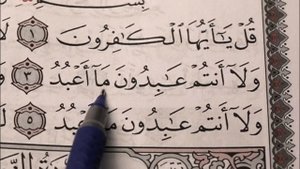 قُلْ يَٰٓأَيُّهَا ٱلْكَٰفِرُونَ ١
وَلَآ أَنتُمْ عَٰبِدُونَ مَآ أَعْبُدُ ٣
وَلَآ أَنتُمْ عَٰبِدُونَ مَآ أَعْبُدُ ٥